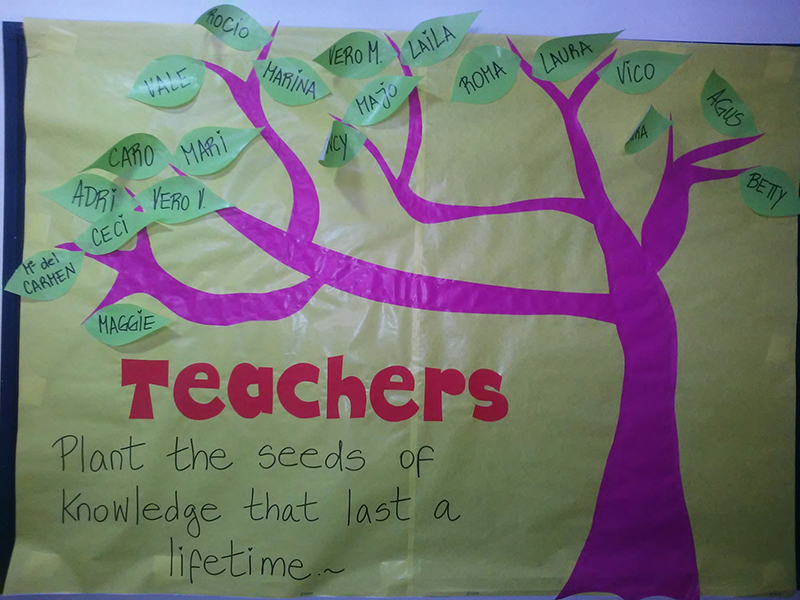 ROCIO
VERO M.
LAILA
VALE
MARINA
MAJO
ROMA
LAURA
VICO
AGUS
CARO
MARI
ADRI
VERO V.
CECI
BETTY
Mª del
CARMEN
MAGGIE
Teachers
Plant the seeds of
Knowledge that last a
lifetime.~